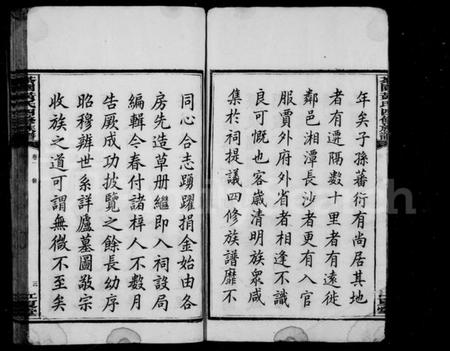 年矣子孫蕃衍有尚居其地
者有遷隔數十里者有遠徙
鄰邑湘潭長沙者更有入官
服賈外府外省者相逢不識
良可慨也客歲清明族眾咸
集於祠提議四修族譜靡不
同心合志踴躍捐金始由各
房先造草册繼即入祠設局
編輯今春付諸梓人不數月
告厥成功披覽之餘長幼序
昭穆辨世系詳廬墓圖敬宗
收族之道可謂無微不至矣
卷一
三